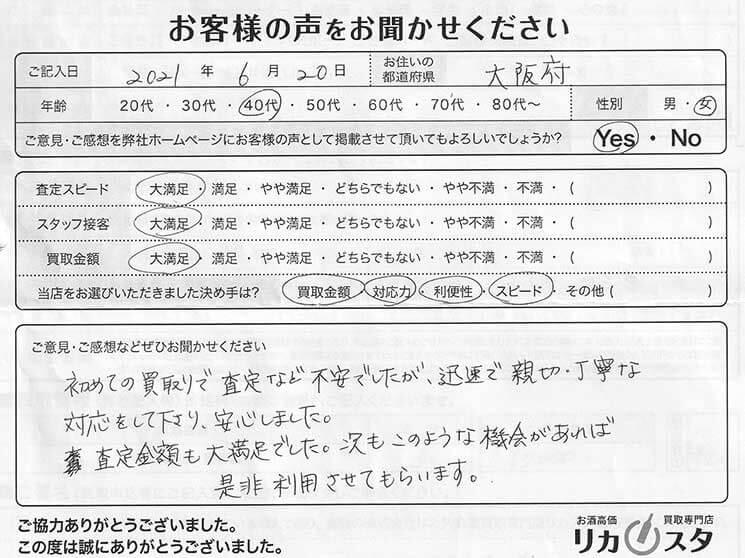 お客様の声をお聞かせください
ご記入日 2021 年 6 月 20 日 お住いの都道府県 大阪府
年齢 20代 ・ 30代 ・ 40代 ・ 50代 ・ 60代 ・ 70代 ・ 80代～ 性別 男 ・ 女
ご意見・ご感想を弊社ホームページにお客様の声として掲載させて頂いてもよろしいでしょうか? Yes ・ No
査定スピード 大満足 ・ 満足 ・ やや満足 ・ どちらでもない ・ やや不満 ・ 不満 ・ ( )
スタッフ接客 大満足 ・ 満足 ・ やや満足 ・ どちらでもない ・ やや不満 ・ 不満 ・ ( )
買取金額 大満足 ・ 満足 ・ やや満足 ・ どちらでもない ・ やや不満 ・ 不満 ・ ( )
当店をお選びいただきました決め手は? 買取金額 ・ 対応力 ・ 利便性 ・ スピード ・ その他 ( )
ご意見・ご感想などぜひお聞かせください
初めての買取りで査定など不安でしたが、迅速で親切・丁寧な
対応をして下さり、安心しました。
査定金額も大満足でした。次もこのような機会があれば
是非利用させてもらいます。
ご協力ありがとうございました。
この度は誠にありがとうございました。
お酒高価 買取専門店
リカスタ